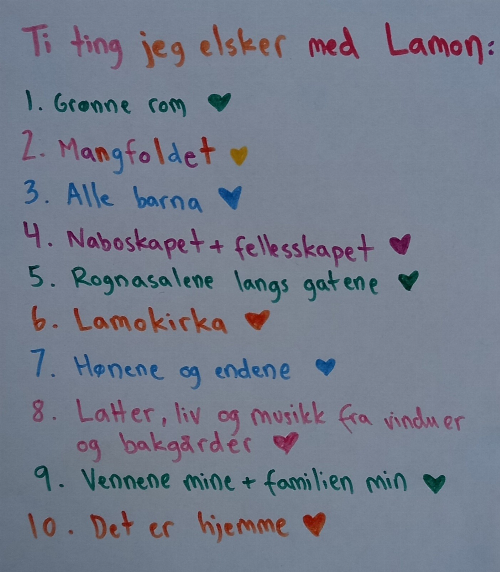 Ti ting jeg elsker med Lamon:
1. Grønne rom
2. Mangfoldet
3. Alle barna
4. Naboskapet + fellesskapet
5. Rognasalene langs gatene
6. Lamokirka
7. Hønene og endene
8. Latter, liv og musikk fra vinduer
og bakgårder
9. Vennene mine + familien min
10. Det er hjemme